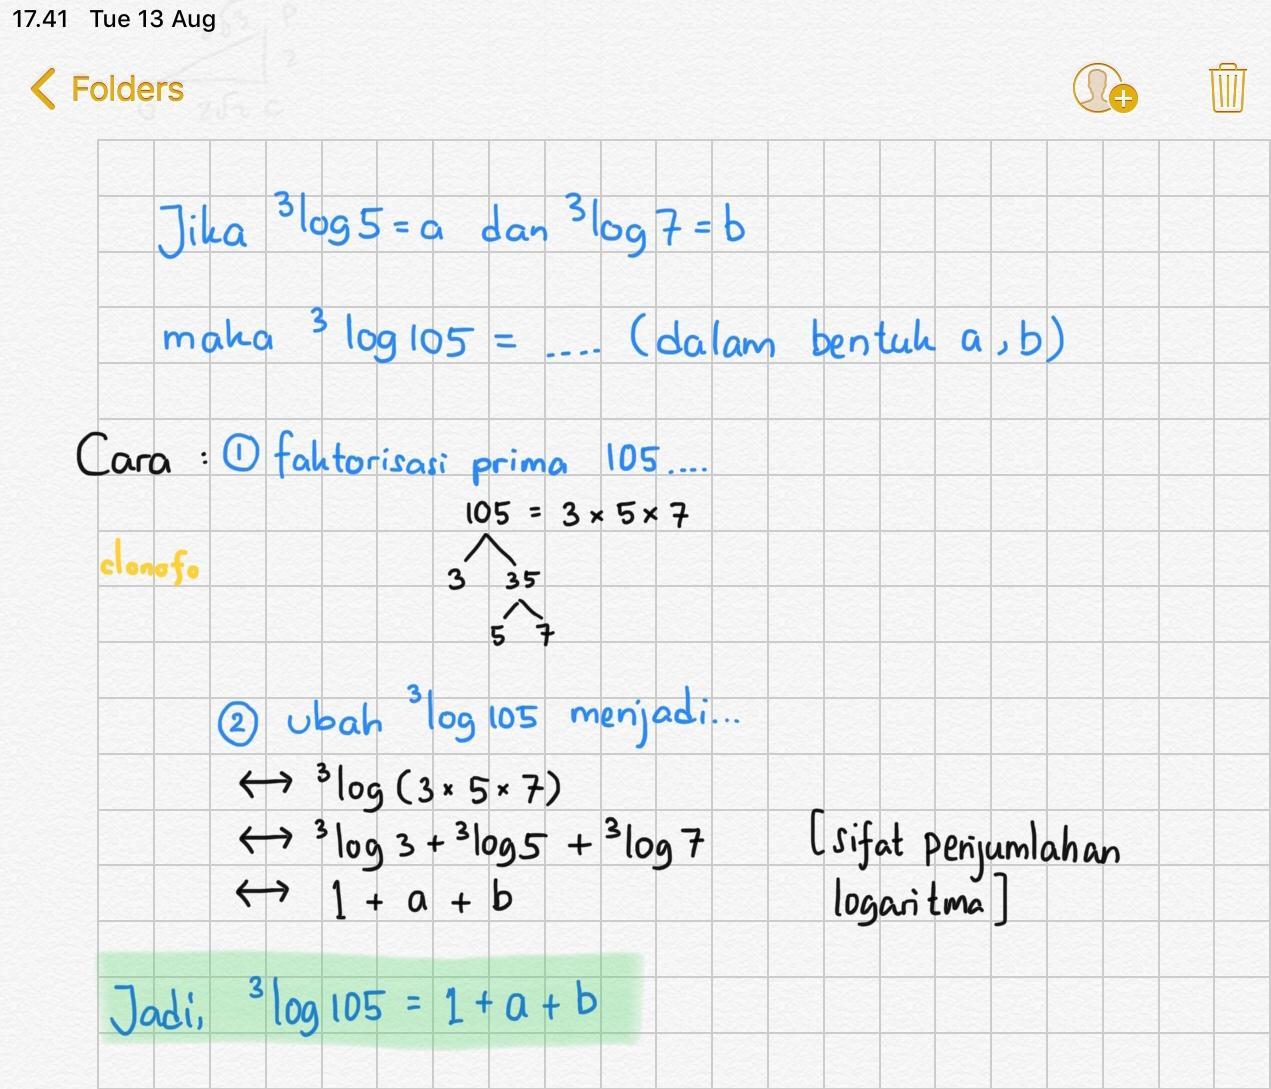 17.41 Tue 13 Aug
Folders
Jika ³log 5 = a dan ³log 7 = b
maka ³log 105 = .... (dalam bentuk a, b)
Cara : ① faktorisasi prima 105....
105 = 3 × 5 × 7
clonofo
3 35
5 7
② ubah ³log 105 menjadi...
↔ ³log (3 × 5 × 7)
↔ ³log 3 + ³log 5 + ³log 7 [sifat penjumlahan
↔ 1 + a + b logaritma]
Jadi, ³log 105 = 1 + a + b